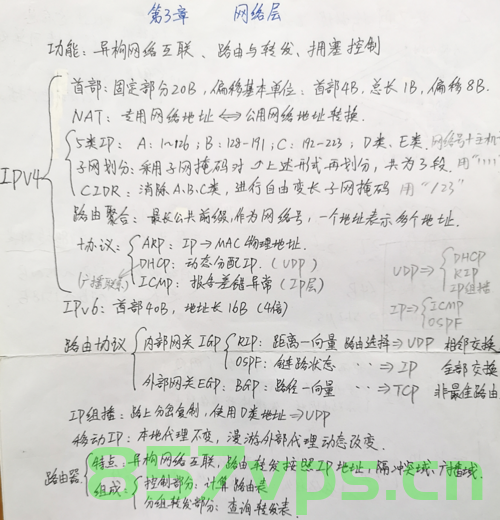 第3章 网络层
功能：异构网络互联、路由与转发、拥塞控制
首部：固定部分20B，偏移基本单位：首部4B，总长1B，偏移8B.
NAT：专用网络地址⇔公用网络地址转换.
5类IP：A：1~126；B：128-191；C：192-223；D类、E类.网络号+主机
子网划分：采用子网掩码对↑上述形式再划分，共为3段.用"1111"
CIDR：消除A.B.C类，进行自由变长子网掩码 用"/23"
IPv4
路由聚合：最长公共前缀，作为网络号，一个地址表示多个地址.
ARP：IP→MAC物理地址.
协议：DHCP：动态分配IP.（UDP）
ICMP：报告差错异常（IP层）
UDP⇒ DHCP RIP IP组播
IP⇒ ICMP OSPF
IPv6：首部40B，地址长16B（4倍）
内部网关IGP RIP：距离—向量 路由选择⇒UDP 相邻交换
路由协议 OSPF：链路状态 ‥⇒IP 全部交换
外部网关EGP：BGP：路径—向量 ‥⇒TCP 非最佳路由
IP组播：路上分岔复制，使用D类地址⇒UDP
移动IP：本地代理不变，漫游外部代理动态改变.
特点：异构网络互联，路由转发按照IP地址，隔冲突域、广播域.
路由器
组成：控制部分：计算路由表
分组转发部分：查询转发表.
857vps.cn